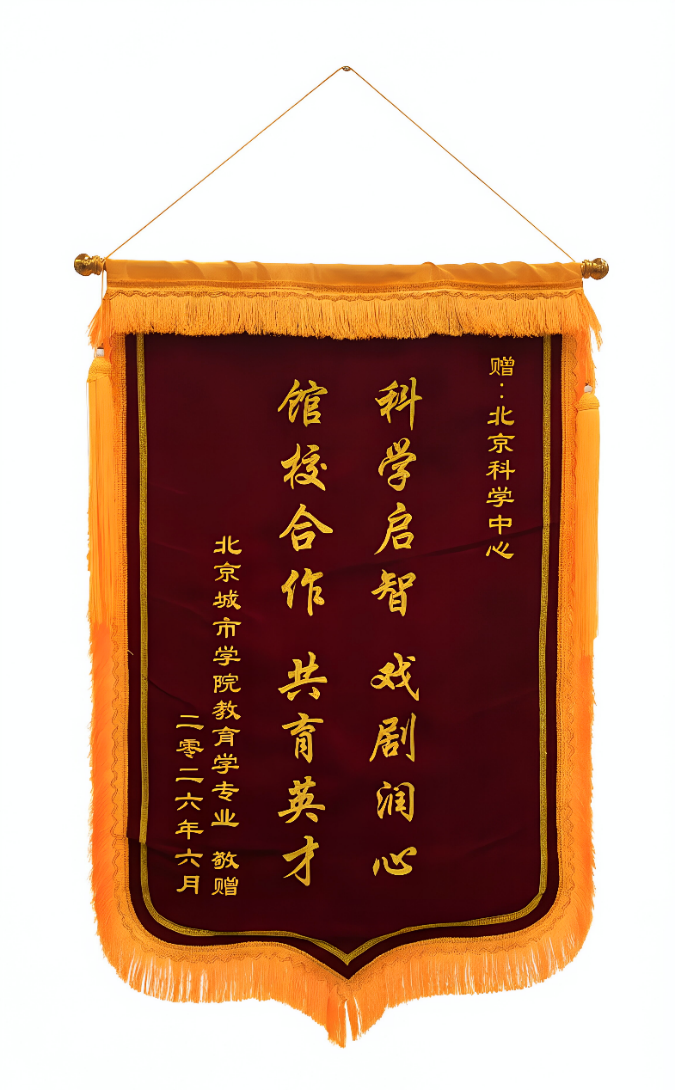 赠：北京科学中心
科学启智 戏剧润心
馆校合作 共育英才
北京城市学院教育学专业 敬赠
二零二六年六月